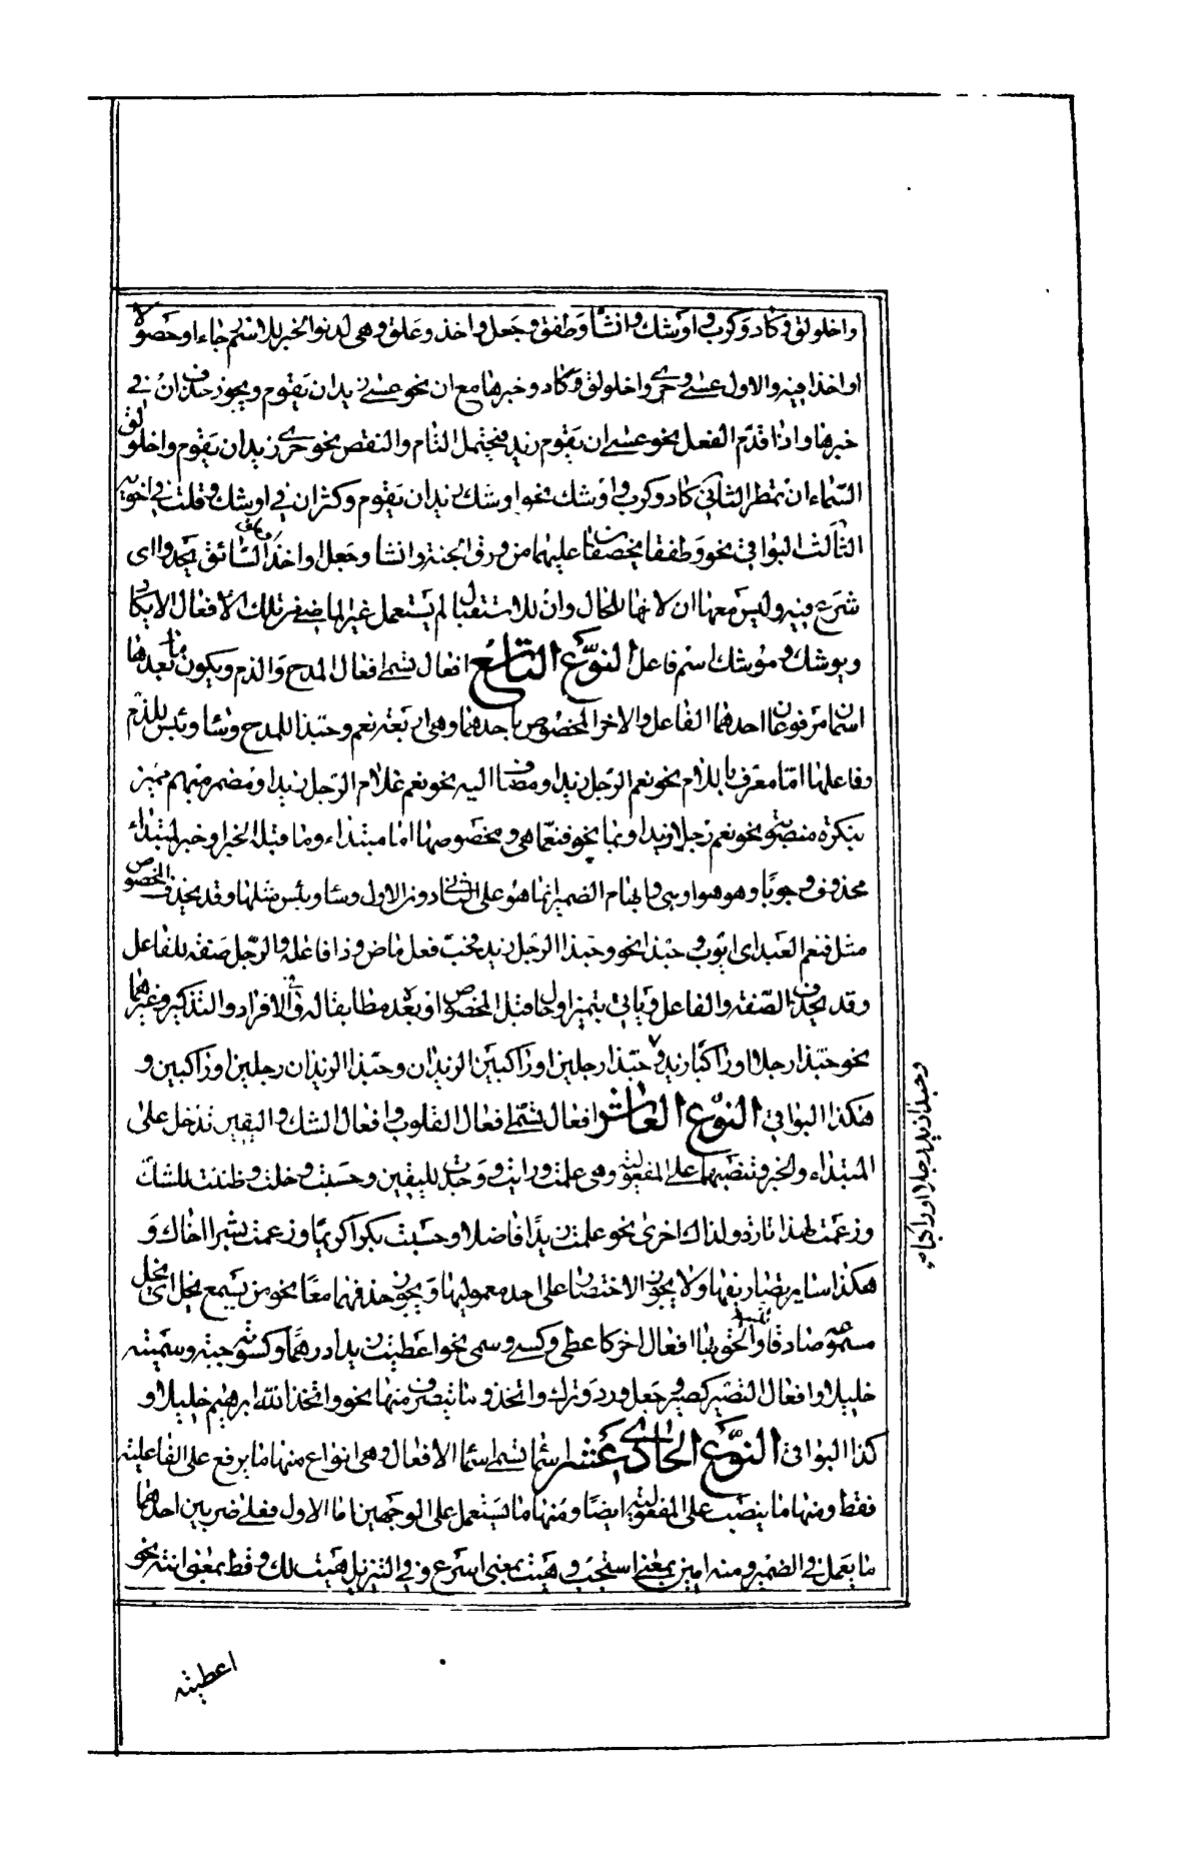 واخلولق وكاد وكرب واوشك وانشأ وطفق وجعل واخذ وعلق وهي لدنو الخبر للاسم رجاء او حصولا
او اخذا فيه والاول عسى وحرى واخلولق وكاد وخبرها مع ان نحو عسى زيد ان يقوم ويجوز حذف ان في
خبرها واذا قدّم الفعل نحو عسى ان يقوم زيد فيحتمل التام والنقص نحو حرى زيد ان يقوم واخلولق
السّماء ان تمطر الثاني كاد وكرب واوشك نحو اوشك زيد ان يقوم وكثر ان في اوشك وقلت في اخويه
الثالث البواقي نحو وطفقا يخصفان عليهما من ورق الجنة وانشا وجعل واخذ السّائق يحدو اي
شرع فيه وليس معها ان لانها للحال وان للاستقبال لم يستعمل غير الماضي من تلك الافعال الا يكاد
ويوشك وموشك اسم فاعل النوع التاسع افعال تسمى افعال المدح والذم ويكون ما بعدها
اسمان مرفوعان احدهما الفاعل والاخر المخصوص باحدهما وهي اربعة نعم وحبذا للمدح وساء وبئس للذم
وفاعلها امّا معرف باللام نحو نعم الرّجل زيد او مضاف اليه نحو نعم غلام الرّجل زيد او مضمر مبهم مميز
بنكرة منصوبة نحو نعم رجلا زيد او بما نحو فنعمّا هي ومخصوصها اما مبتداء وما قبله الخبر او خبر لمبتداء
محذوف وجوبًا وهو هو او هي وابهام الضمير انما هو على الثاني دون الاول وساء وبئس مثلها وقد يحذف المخصوص
مثل فنعم العبد اي ايّوب وحبذا نحو وحبذا الرجل زيد فحبّ فعل ماض وذا فاعله والرّجل صفة للفاعل
وقد يحذف الصّفة والفاعل وياتي بتميز او حال قبل المخصوص او بعده مطابقا له في الافراد والتذكير وغيرهما
نحو حبّذا رجلا او راكبًا زيد وحبّذا رجلين او راكبين الزيدان وحبّذا الزيدان رجلين او راكبين و
هكذا البواقي النوع العاشر افعال تسمّى افعال القلوب وافعال الشك واليقين تدخل على
المبتداء والخبر وتنصبهما على المفعولية وهي علمت ورايت ووجدت لليقين وحسبت وخلت وظننت للشك
وزعمت لهذا تارة ولذاك اخرى نحو علمت زيدًا فاضلا وحسبت بكرا كريمًا وزعمت بشرا اخاك و
هكذا ساير تصاريفها ولا يجوز الاختصار على احد معموليها ويجوز حذفهما معًا نحو من يسمع يخل اي يخل
مسموعه صادقا والحق بها افعال اخر كاعطى وكسى وسمى نحو اعطيت زيدا درهمًا وكسوته جبة وسميته
خليلا وافعال التصير كصير وجعل ورد وترك واتخذ وما تصرف منها نحو واتخذ الله ابرهيم خليلا و
كذا البواقي النوع الحادي عشر اسما تسمى اسما الافعال وهي انواع منها ما يرفع على الفاعلية
فقط ومنها ما ينصب على المفعولية ايضًا ومنها ما يستعمل على الوجهين اما الاول فعلى ضربين احدهما
ما يعمل في الضمير ومنه امين بمعنى استجب وهيت بمعنى اسرع وفي التنزيل هيت لك وقط بمعنى انته نحو
وحبذا زيد رجلا او راكبا
اعطيته